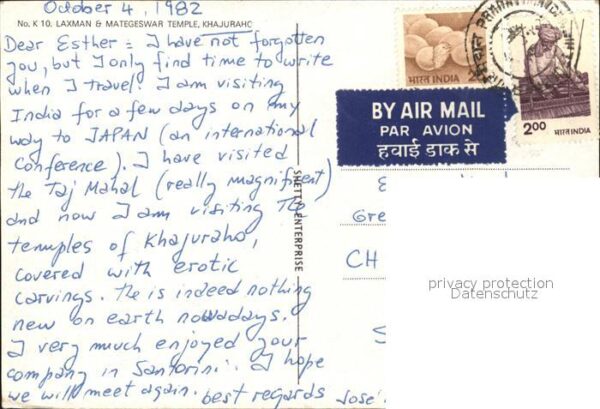 October 4, 1982
No. K 10. LAXMAN & MATEGESWAR TEMPLE, KHAJURAHO
Dear Esther: I have not forgotten
you, but I only find time to write
when I travel. I am visiting
India for a few days on my
way to JAPAN (an international
Conference). I have visited
the Taj Mahal (really magnifient)
and now I am visiting the
temples of Khajuraho,
covered with erotic
carvings. The is indeed nothing
new on earth nowadays.
I very much enjoyed your
company in Santorini. I hope
we will meet again. best regards José
SHETTY ENTERPRISE
भारत INDIA
2.00 भारत INDIA
BY AIR MAIL
PAR AVION
हवाई डाक से
E
Gre
CH
S
privacy protection
Datenschutz